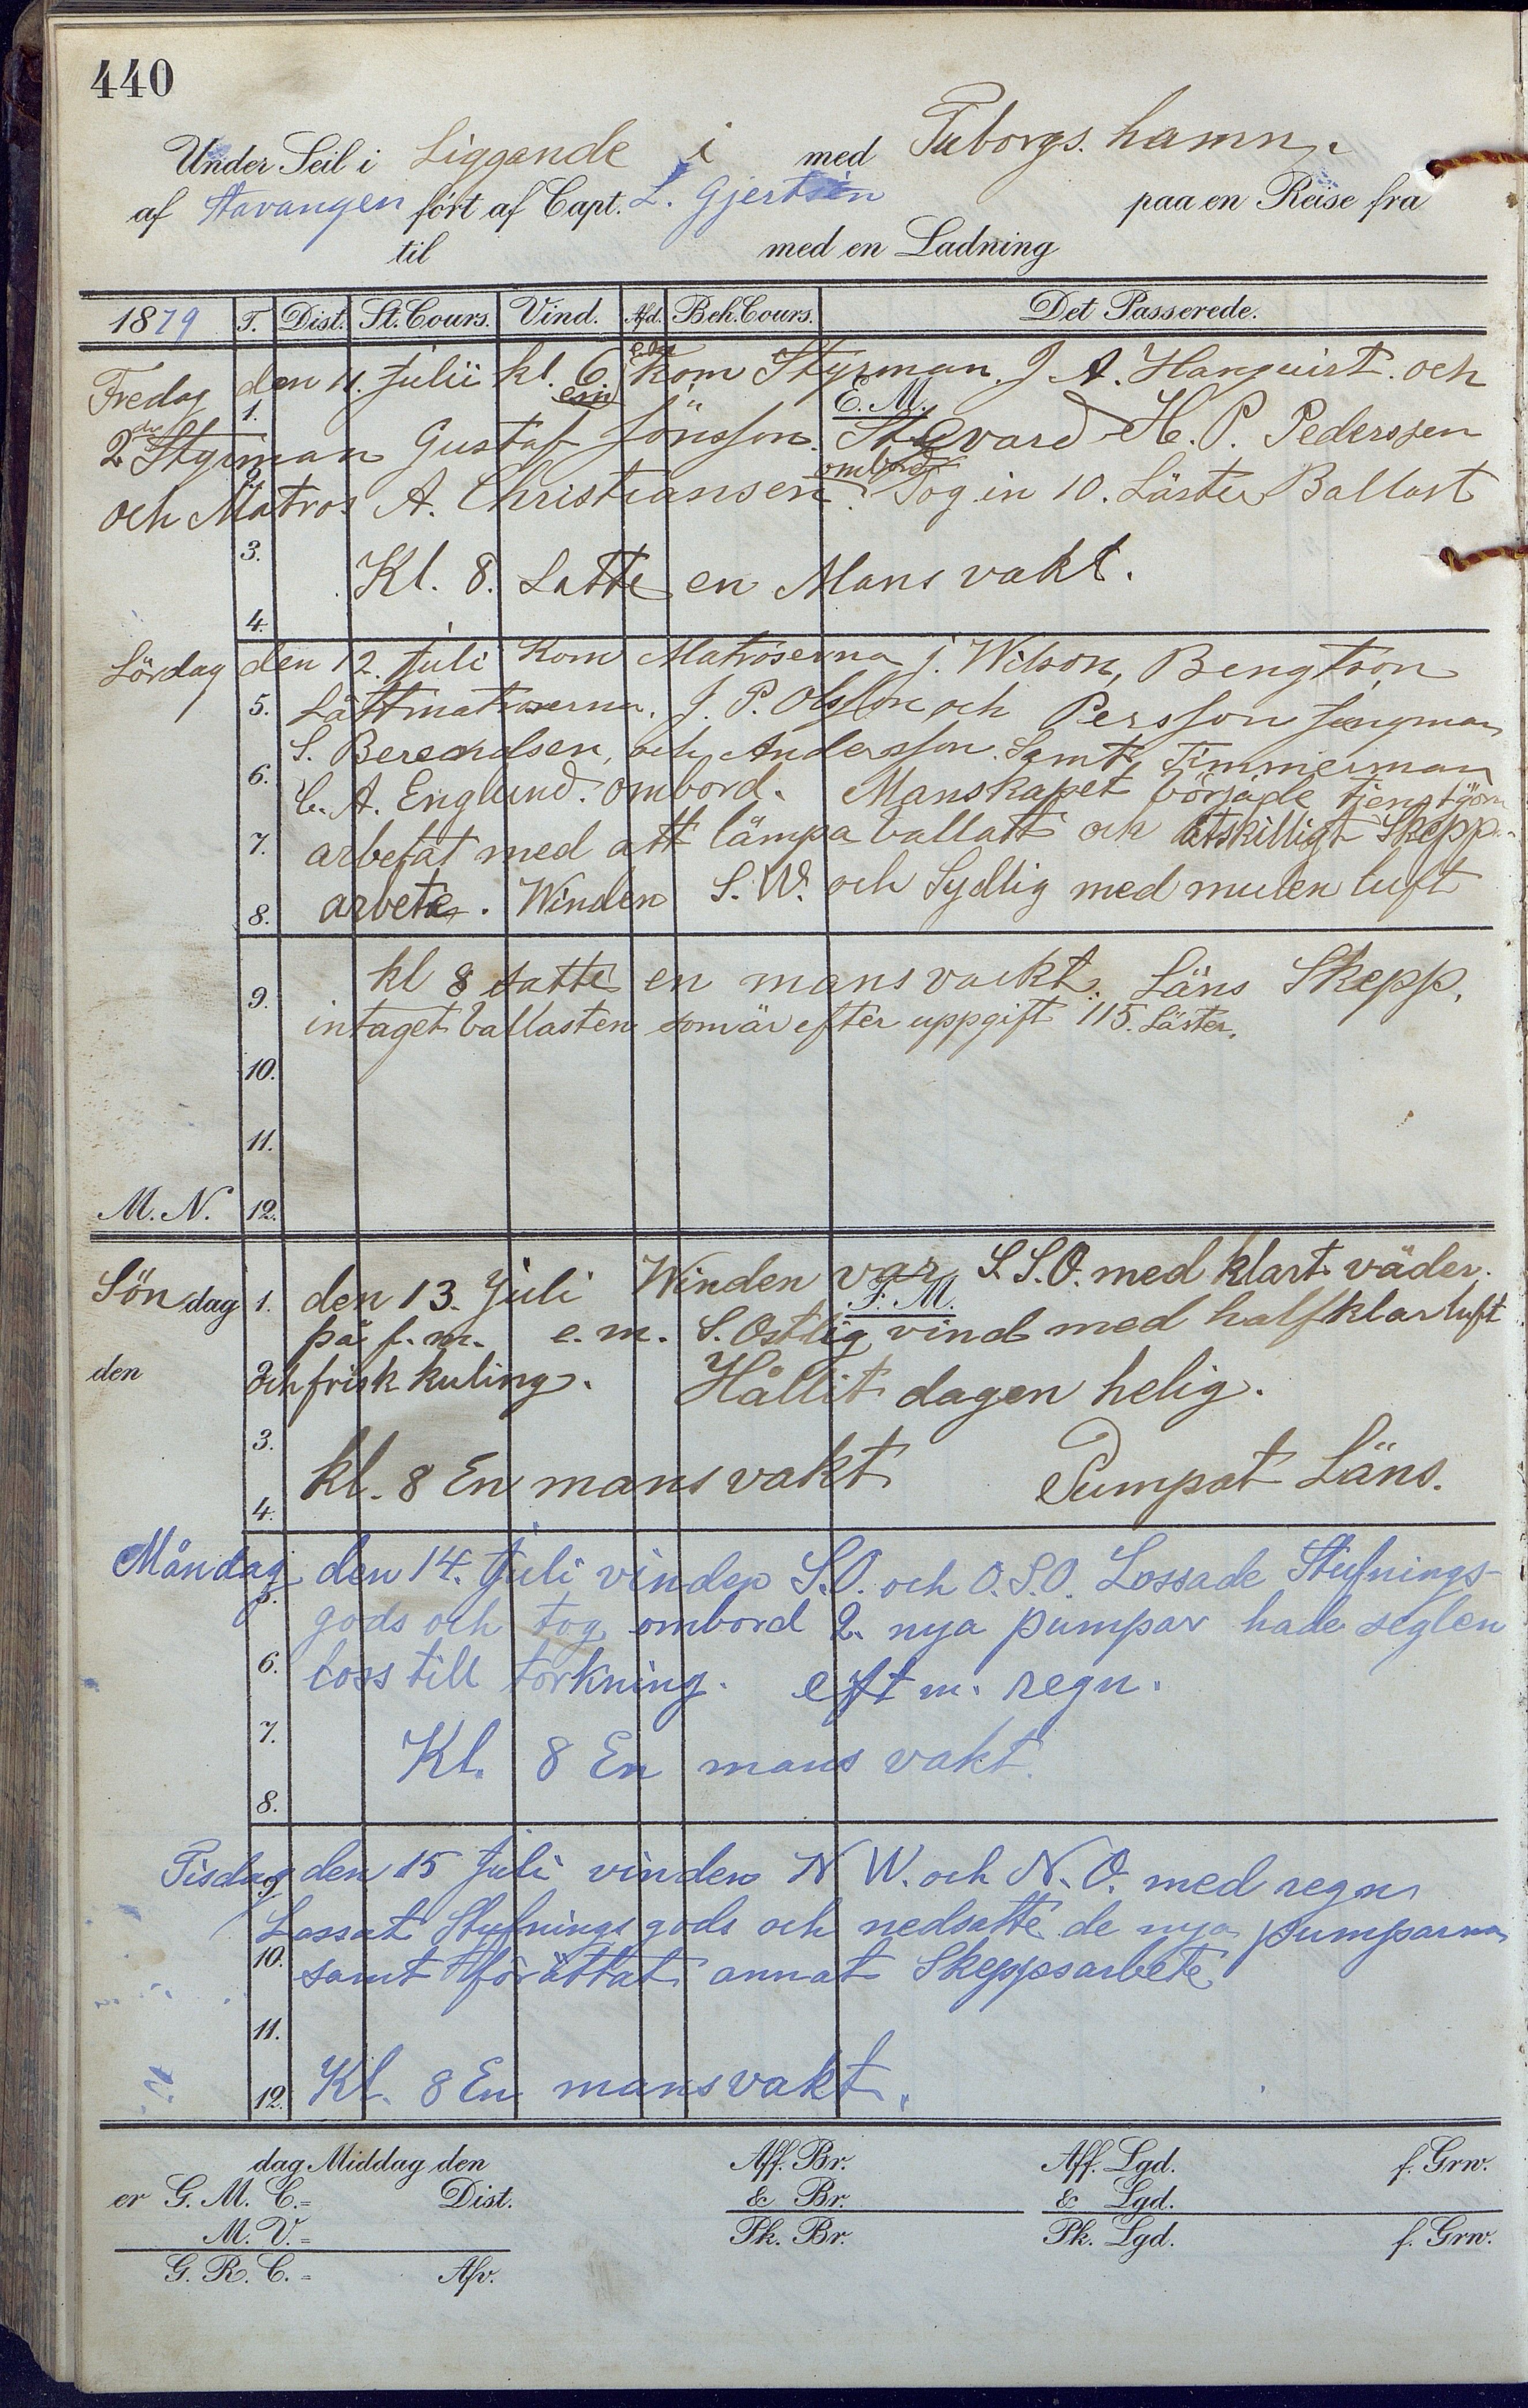 440
Under Seil i Liggande i med Tuborgs hamn.
af Stavanger ført af Capt. L. Gjertsen paa en Reise fra
til med en Ladning
1879 T. Dist. St. Cours. Vind. Afd. Beh. Cours. Det Passerede.
Fredag den 11. Julii kl. 6. em kom Styrman. J A. Hanquist. och
1. E. M.
2dre Styrman Gustaf Jönsson. Stevard H. P. Pederssen
och Matros A. Christiansen. ombord Tog in 10. Läster Ballast
3.
Kl. 8. Satte en Mans vakt.
4.
Lördag den 12. Juli Kom Matroserna j. Wilson, Bengtson
5. Lättmatroserna. J. P. Olsson och Persson jungman
S. Berendsen, och Andersson. Samt Timmerman
6. C. A. Englund. ombord. Manskapet började
7. arbetat med att lämpa ballast och åtskilligt Skepps-
8. arbete. Winden S. W. och Sydlig med mulen luft
kl 8 satte en mans vackt. Läns Skepp.
9.
intaget ballasten som är efter uppgift 115. Läster.
10.
11.
M. N. 12.
Söndag 1. den 13. Juli Winden var S. S. O. med klart väder.
F. M.
på f. m. e. m. S. Ostlig vind med halfklar luft
den 2. och frisk kuling. Hållit dagen helig.
3.
kl. 8 En mans vakt Pumpat Läns.
4.
Måndag den 14. Juli vinden S. O. och O. S. O. Lossade Stufnings-
5.
gods och tog ombord 2. nya pumpar hade seglen
6. loss till torkning. eft m. regn.
7.
Kl. 8 En mans vakt.
8.
Tisdag den 15 Juli vinden N W. och N. O. med regn
9.
Lossat Stufnings gods och nedsatte de nya pumparna
10. samt förättat annat Skeppsarbete
11.
12. Kl. 8 En mans vakt.
dag Middag den Aff. Br. Aff. Lgd. f. Grw.
er G. M. C.= Dist. & Br. & Lgd.
M. V.= Pk. Br. Pk. Lgd. f. Grw.
G. R. C.= Afv.